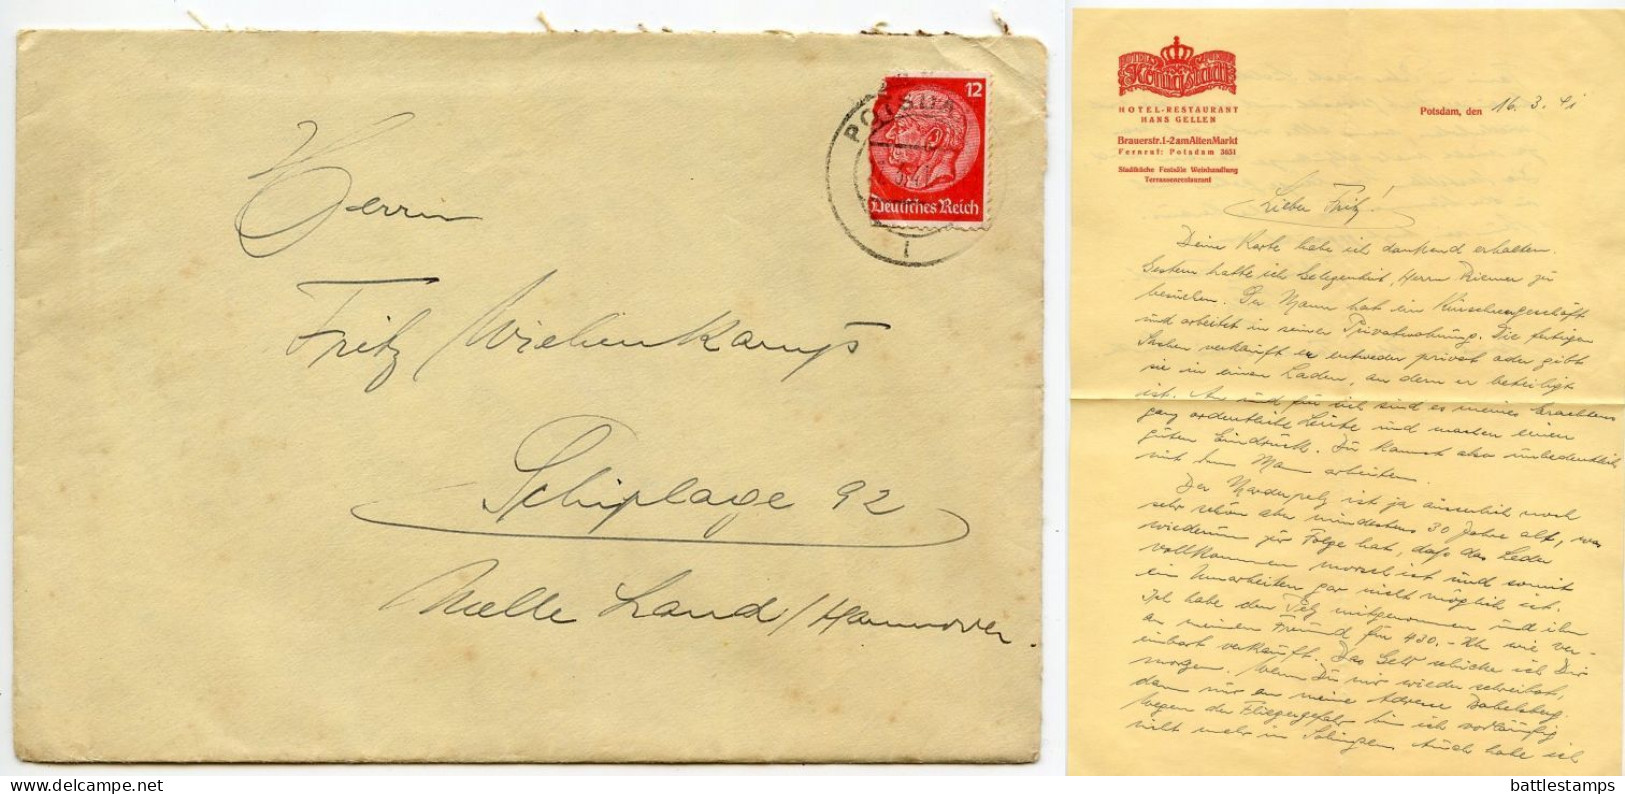 POTSDAM
1
12
Deutsches Reich
Herrn
Fritz Wiehenkamp
Schiplage 92
Melle Land/Hannover.
Königstadt
HOTEL-RESTAURANT
HANS GELLEN
Brauerstr.1-2amAltenMarkt
Fernruf: Potsdam 3651
Stadtküche Festsäle Weinhandlung
Terrassenrestaurant
Potsdam, den 16.3.41
Lieber Fritz!
Deine Karte habe ich dankend erhalten.
Gestern hatte ich Gelegenheit, Herrn Riemer zu
besuchen. Der Mann hat ein Kürschnergeschäft
und arbeitet in seiner Privatwohnung. Die fertigen
Sachen verkauft er entweder privat oder gibt
sie in einen Laden, an dem er beteiligt
ist. An und für sich sind es meines Erachtens
ganz ordentliche Leute und machen einen
guten Eindruck. Du kannst also unbedenklich
mit dem Mann arbeiten.
Der Marderpelz ist ja äusserlich noch
sehr schön aber mindestens 30 Jahre alt, was
wiederum zur Folge hat, dass das Leder
vollkommen morsch ist und somit
ein Umarbeiten gar nicht möglich ist.
Ich habe den Pelz mitgenommen und ihn
an meinen Freund für 430.- RM wie ver-
einbart verkauft. Das Geld schicke ich Dir
morgen. Wenn Du mir wieder schreibst,
dann nur an meine Adresse Babelsberg.
Wegen der Fliegergefahr bin ich vorläufig
nicht mehr in Solingen. Auch habe ich
battlestamps